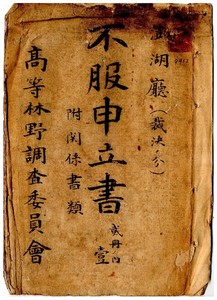 湖廳(裁決ノ分)
不服申立書
附関係書類
弐冊ノ内
壹
高等林野調査委員會